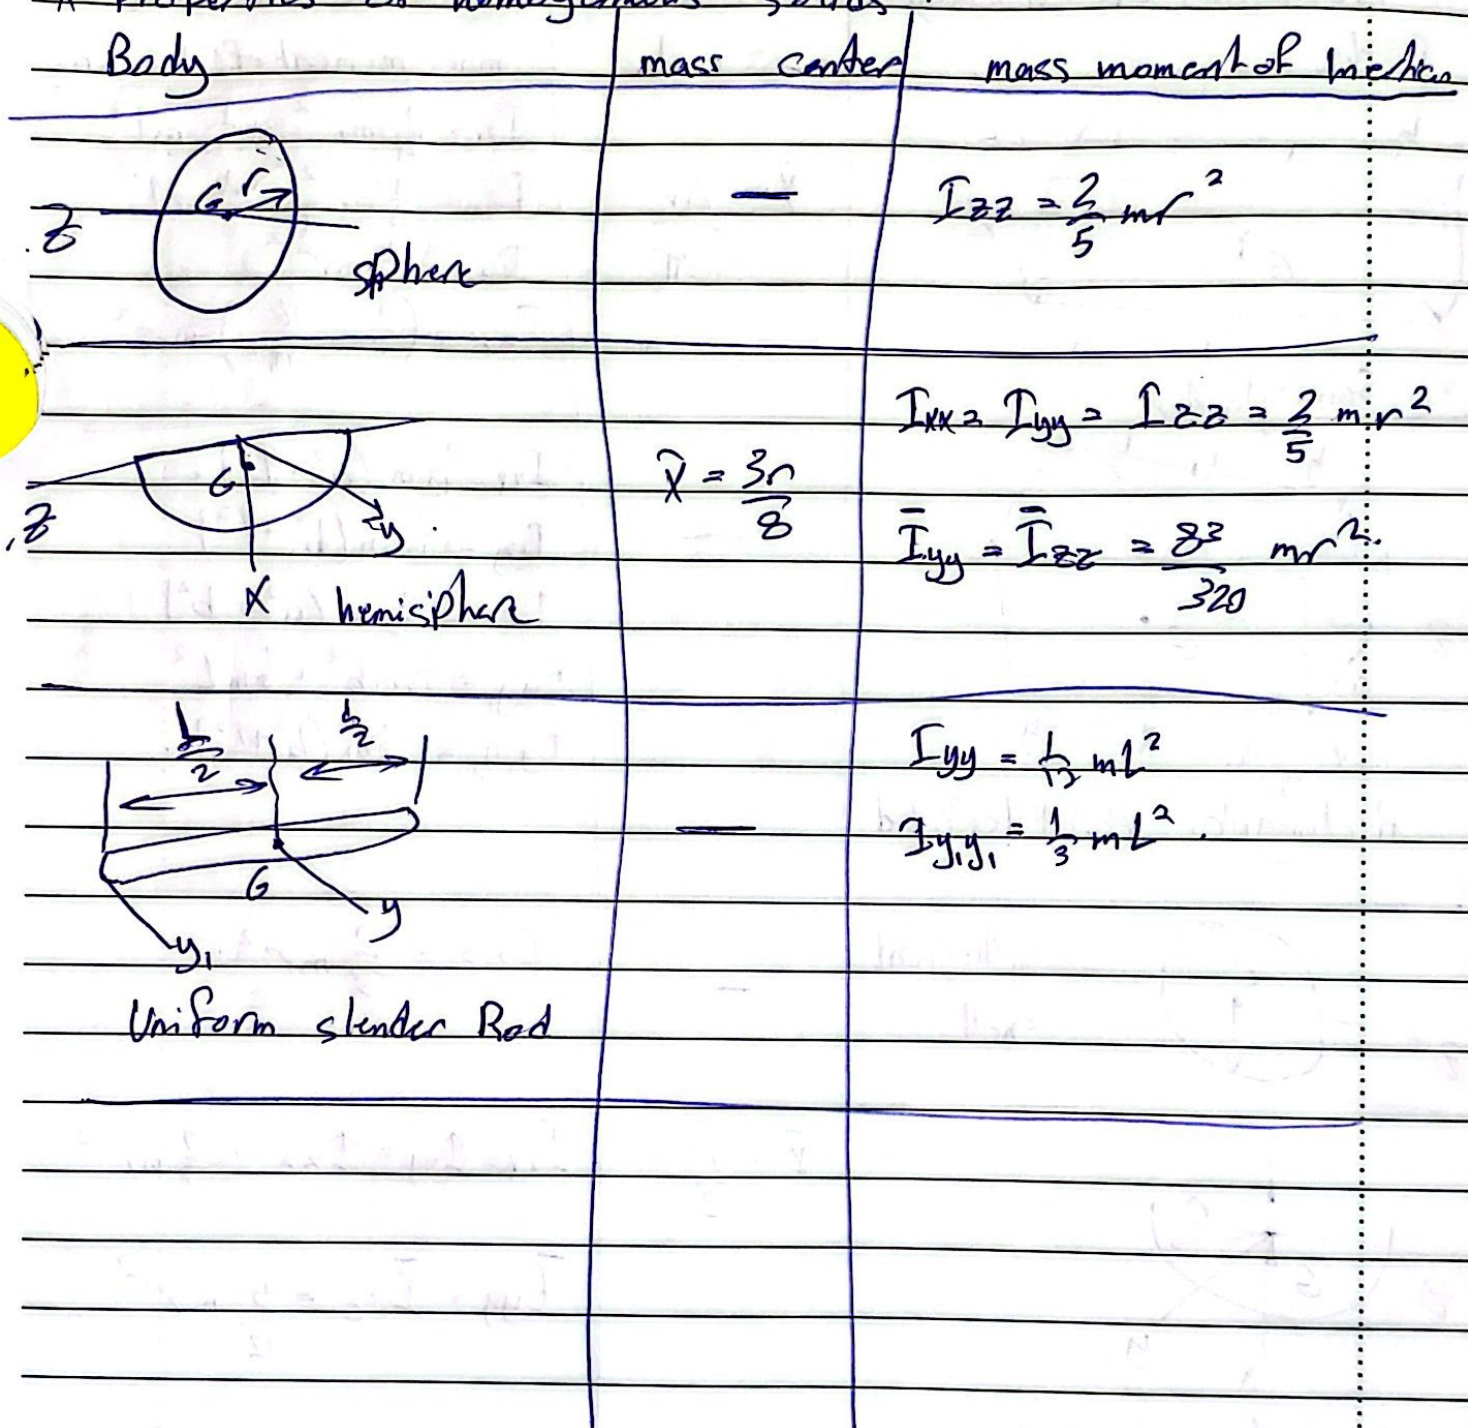 * Properties of homogenous solids.
Body mass center mass moment of Inertia
G r
Z
sphere
—
Izz = 2/5 mr²
G
Z
y
X
hemisphere
X̄ = 3r/8
Ixx = Iyy = Izz = 2/5 mr²
Īyy = Īzz = 83/320 mr².
L/2 L/2
G
y
y₁
Uniform slender Rod
—
Iyy = 1/12 mL²
Iy₁y₁ = 1/3 mL².